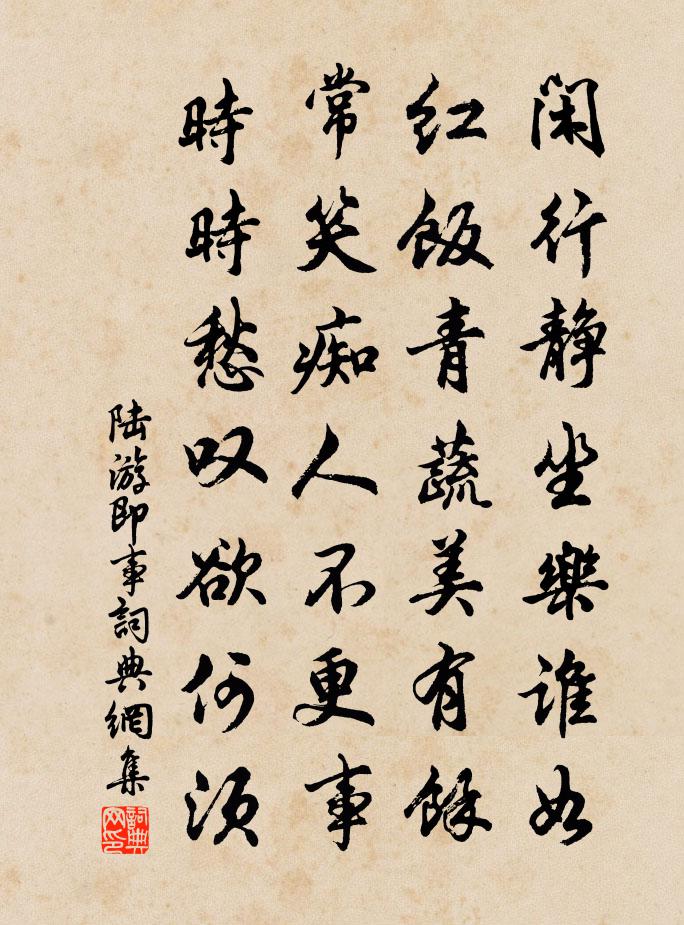 閑行静坐樂谁如
红飯青蔬美有餘
常笑痴人不更事
時時愁叹欲何须
陆游即事詞典網集
詞典网印